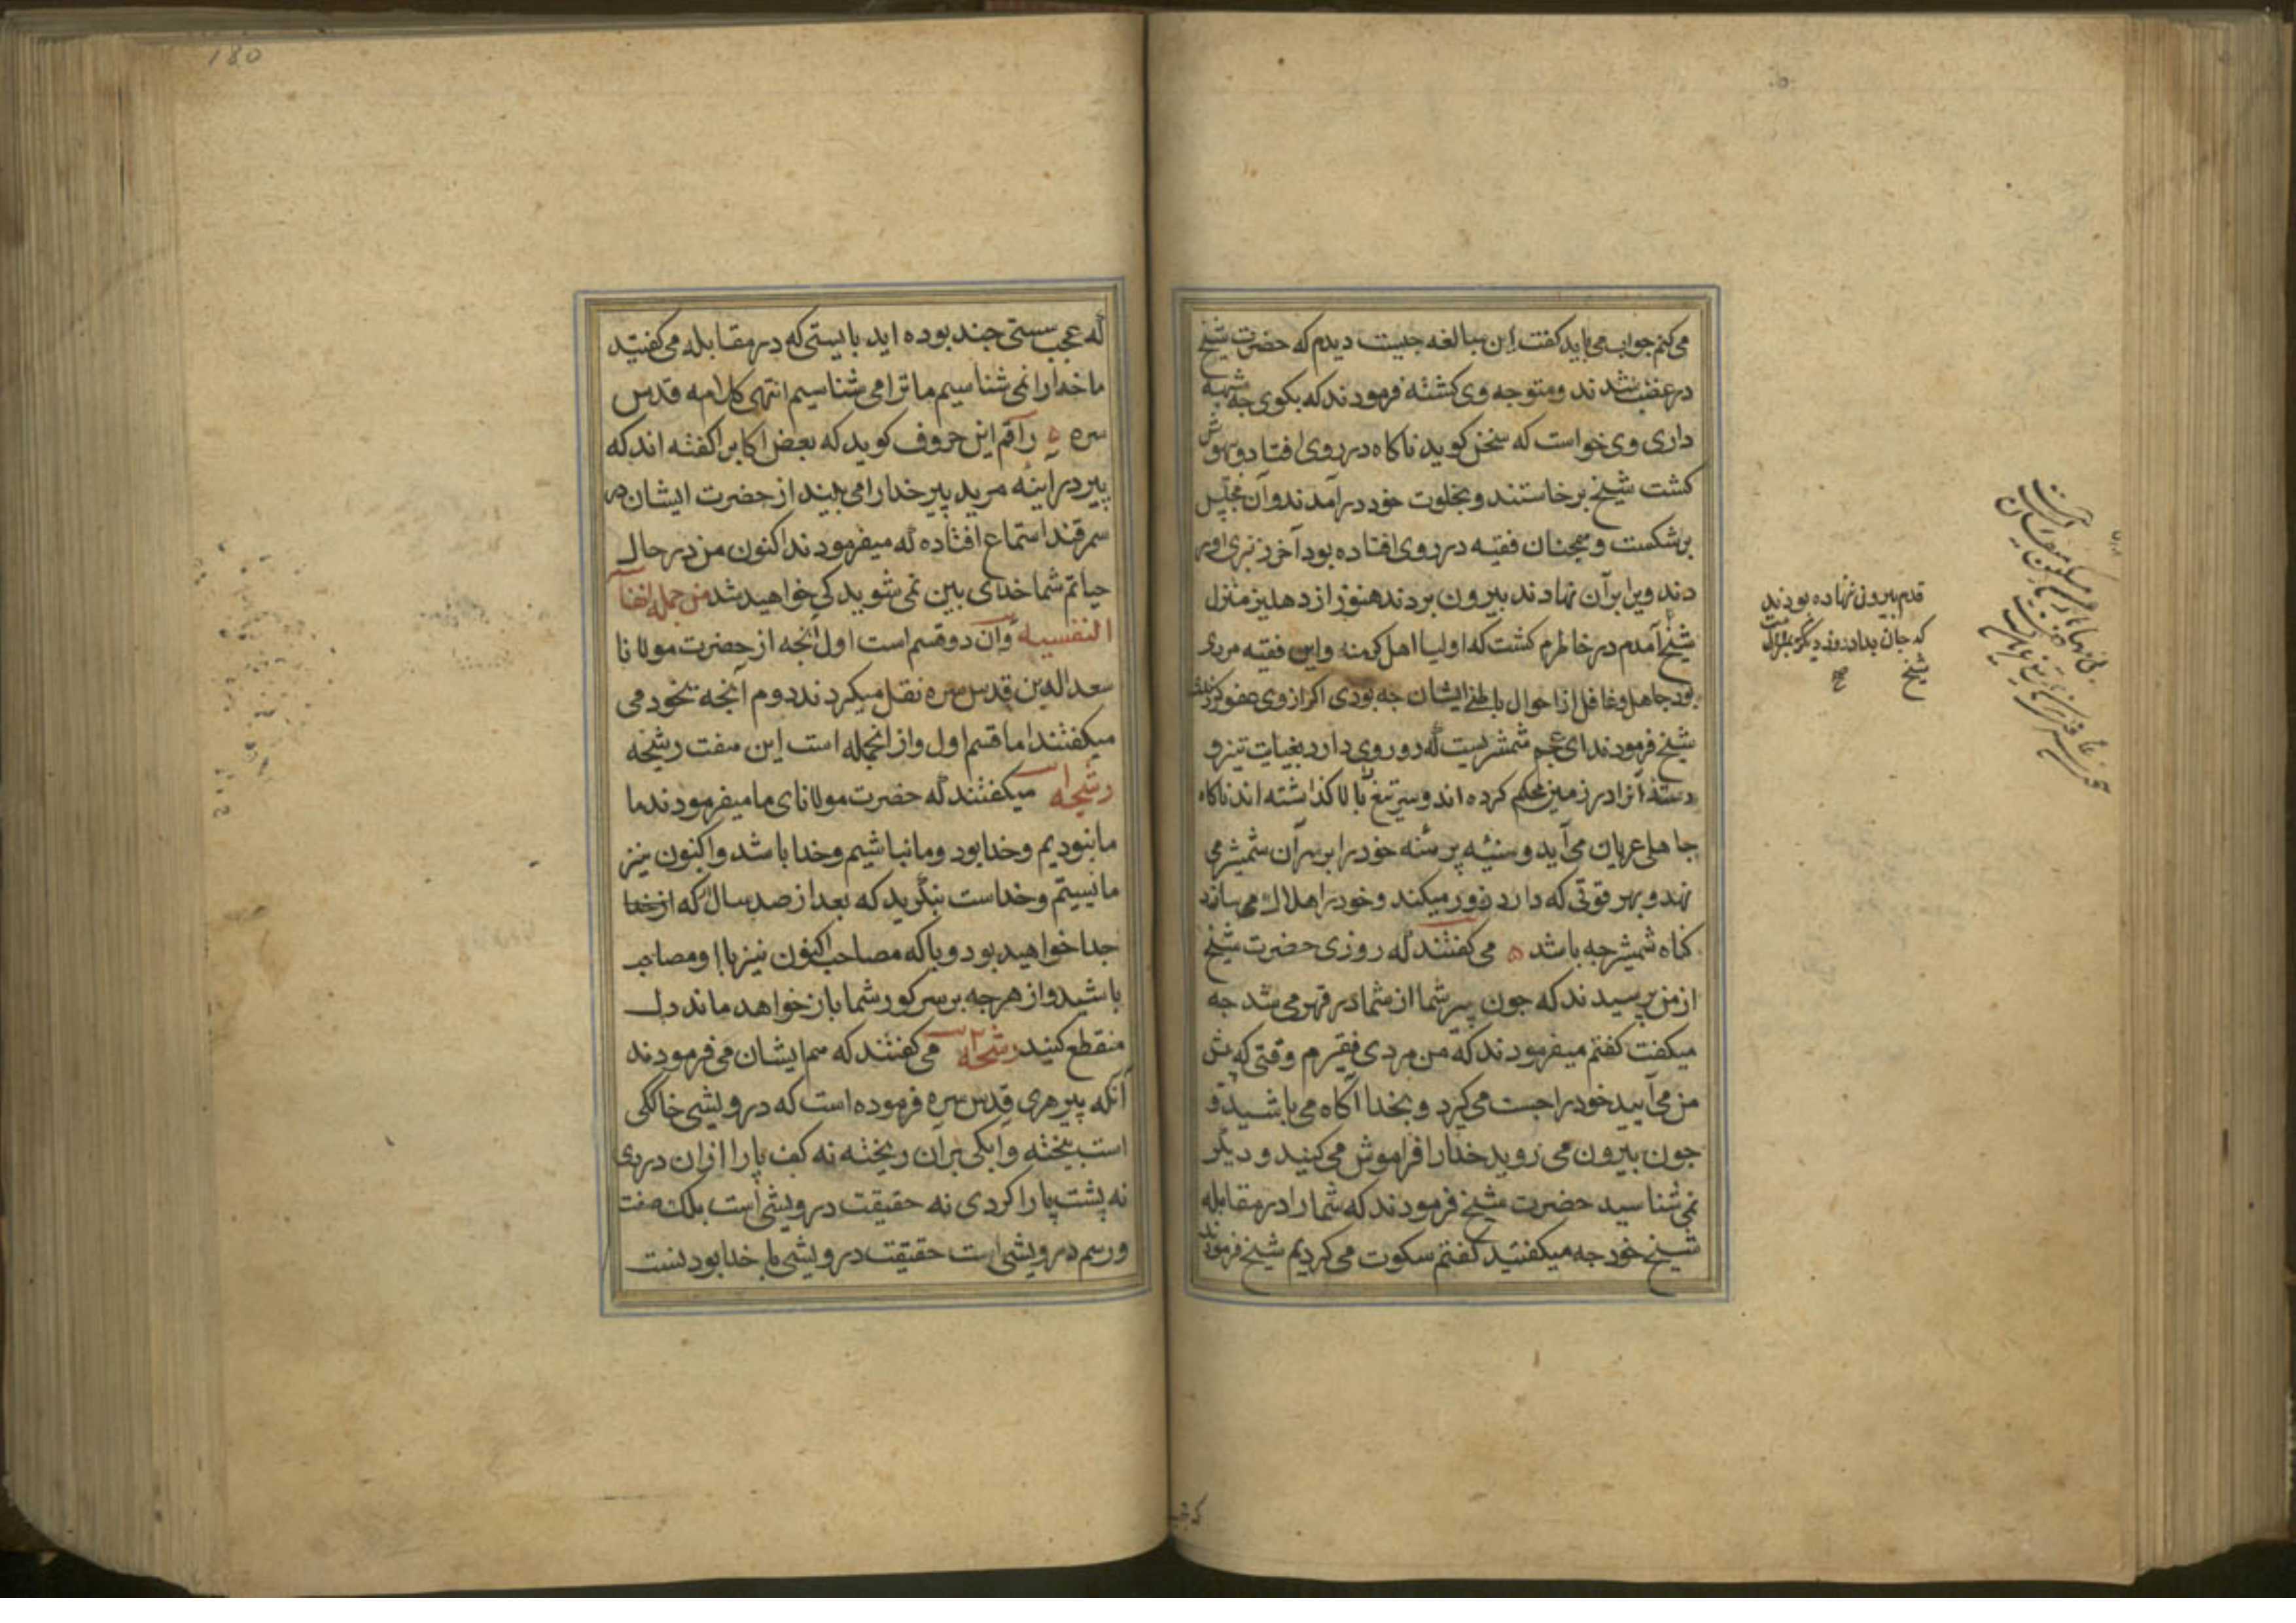 می‌کنم جواب می‌باید گفت این مبالغه جیست دیدم که حضرت شیخ
در غضب شدند و متوجه وی کشته فرمودند که بکوی جه شبهه
داری وی خواست که سخن کوید ناکاه در روی افتاد و بیهوش
کشت شیخ برخاستند و بخلوت خود در آمدند و آن مجلس
برشکست و همچنان فقیه در روی افتاده بود آخر نبری آور
دند و برا بر آن نهادند بیرون بردند هنوز از دهلیز منزل
شیخ آمدم در خاطرم کشت که اولیا اهل کرمند و این فقیه مردی
بود جاهل و غافل از احوال باطنی ایشان جه بودی اکر از وی عفو کردندی
شیخ فرمودند ای عجم شمشریست که دو روی دارد بغیات تیز و
دسته آنرا در زمین محکم کرده‌اند و سر تیغ بالا کذاشته‌اند ناکاه
جاهلی عریان می‌آید و سینه برهنه خود را بر سر آن شمشیر می
نهد و بهر قوتی که دارد زور میکند و خود را هلاک می‌ساند
کناه شمشیر جه باشد ه می‌کفتند که روزی حضرت شیخ
از من پرسیدند که جون پیر شما از شما در قهر می‌شد جه
میکفت کفتم میفرمودند که من مردی فقیرم وقتی که پیش
من می‌آیید خود را جست می‌کیرد و بخدا آکاه می‌باشید و
جون بیرون می‌روید خدا را فراموش می‌کنید و دیکر
نمی‌شناسید حضرت شیخ فرمودند که شما را در مقابله
شیخ خود جه میکفتید کفتم سکوت می‌کردیم شیخ فرمودند
قدم بیرون ننهاده بودند
که جان بداد روز دیکر بملازمت
شیخ
صح
که عجب سستی جند بوده‌اید بایستی که در مقابله می‌کفتید
ما خدا را نمی‌شناسیم ما ترا می‌شناسیم انتهی کلامه قدس
سره ه راقم این حروف کوید که بعض اکابر کفته‌اند که
پیر در آینه مرید پیر خدا را می‌بیند از حضرت ایشان در
سمرقند استماع افتاده که میفرمودند اکنون من در حال
حیاتم شما خدای بین نمی‌شوید کی خواهید شد من جمله انفا
النفسیه و آن دو قسم است اول آنجه از حضرت مولانا
سعد الدین قدس سره نقل میکردند دوم آنجه بخود می
میکفتند اما قسم اول و از آنجمله است این هفت رشحه
رشحه میکفتند که حضرت مولانای ما میفرمودند ما
ما نبودیم و خدا بود و ما نباشیم و خدا باشد و اکنون نیز
ما نیستیم و خداست بنکرید که بعد از صد سال که از خدا
جدا خواهید بود و با که مصاحب اکنون نیز با او مصاحب
باشید و از هرجه بر سر کور شما باز خواهد ماند دل
منقطع کنید رشحه ۲ می‌کفتند که هم ایشان می‌فرمودند
آنکه پیر هری قدس سره فرموده است که درویشی خاککی
است بیخته و ابکی بر آن ریخته نه کف پا را از آن دردی
نه پشت پا را کردی نه حقیقت درویشی است بلک صفت
و رسم درویشی است حقیقت درویشی با خدا بودنست
180